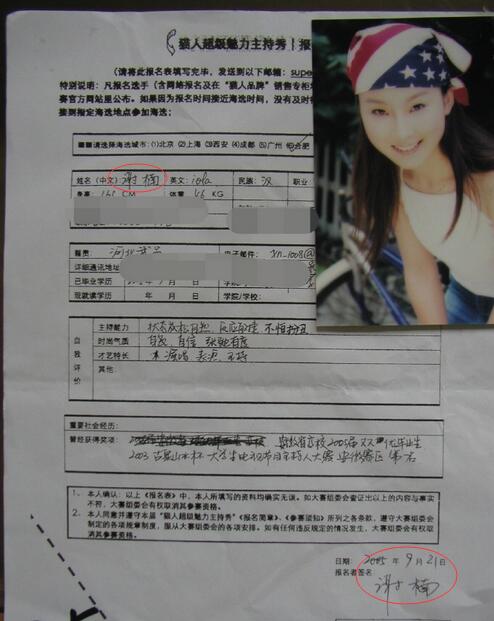 猎人超级魅力主持秀
(请将此报名表填写完毕，发送到以下邮箱：supe
特别说明：凡报名选手（含网络报名及在"猎人品牌"销售专柜
赛官方网站里公布。如果因为报名时间接近海选时间，没有及时
接到指定海选地点参加海选；
请选择海选城市：(1)北京 (2)上海 (3)西安 (4)成都 (5)广州 (6)合肥
姓名（中文）谢楠 英文：iola 民族：汉 职业：
身高： CM 体重：46 KG
籍贯：河北 电子邮件：xn_1008@
详细通讯地址
已毕业学历 年 月 日
现就读学历 年 月 日 学院/学校：
自我评价
主持能力 状态放松自然 反应敏捷 不怕扮丑
时尚气质 自然 自信 张弛有度
才艺特长 演唱 表演 主持
其他：
重要社会经历：
曾经获得奖项： 安徽省 2005届 优秀毕业生
2003 杯 大学生电视节目主持人大赛 安徽赛区 第
1、本人确认：以上《报名表》中，本人所填写的资料均确实无误。如大赛组委会查证出以上的内容与事实
不符，大赛组委会有权取消其参赛资格。
2、本人同意并遵守本届"猎人超级魅力主持秀"《报名简章》、《参赛须知》所列之各条款，遵守大赛组委会
制定的各项规章制度，服从大赛组委会的各项安排。如有任何违反规定的情况发生，大赛组委会有权取
消其参赛资格。
日期：2005 年 9 月 21 日
报名者签名：
谢楠